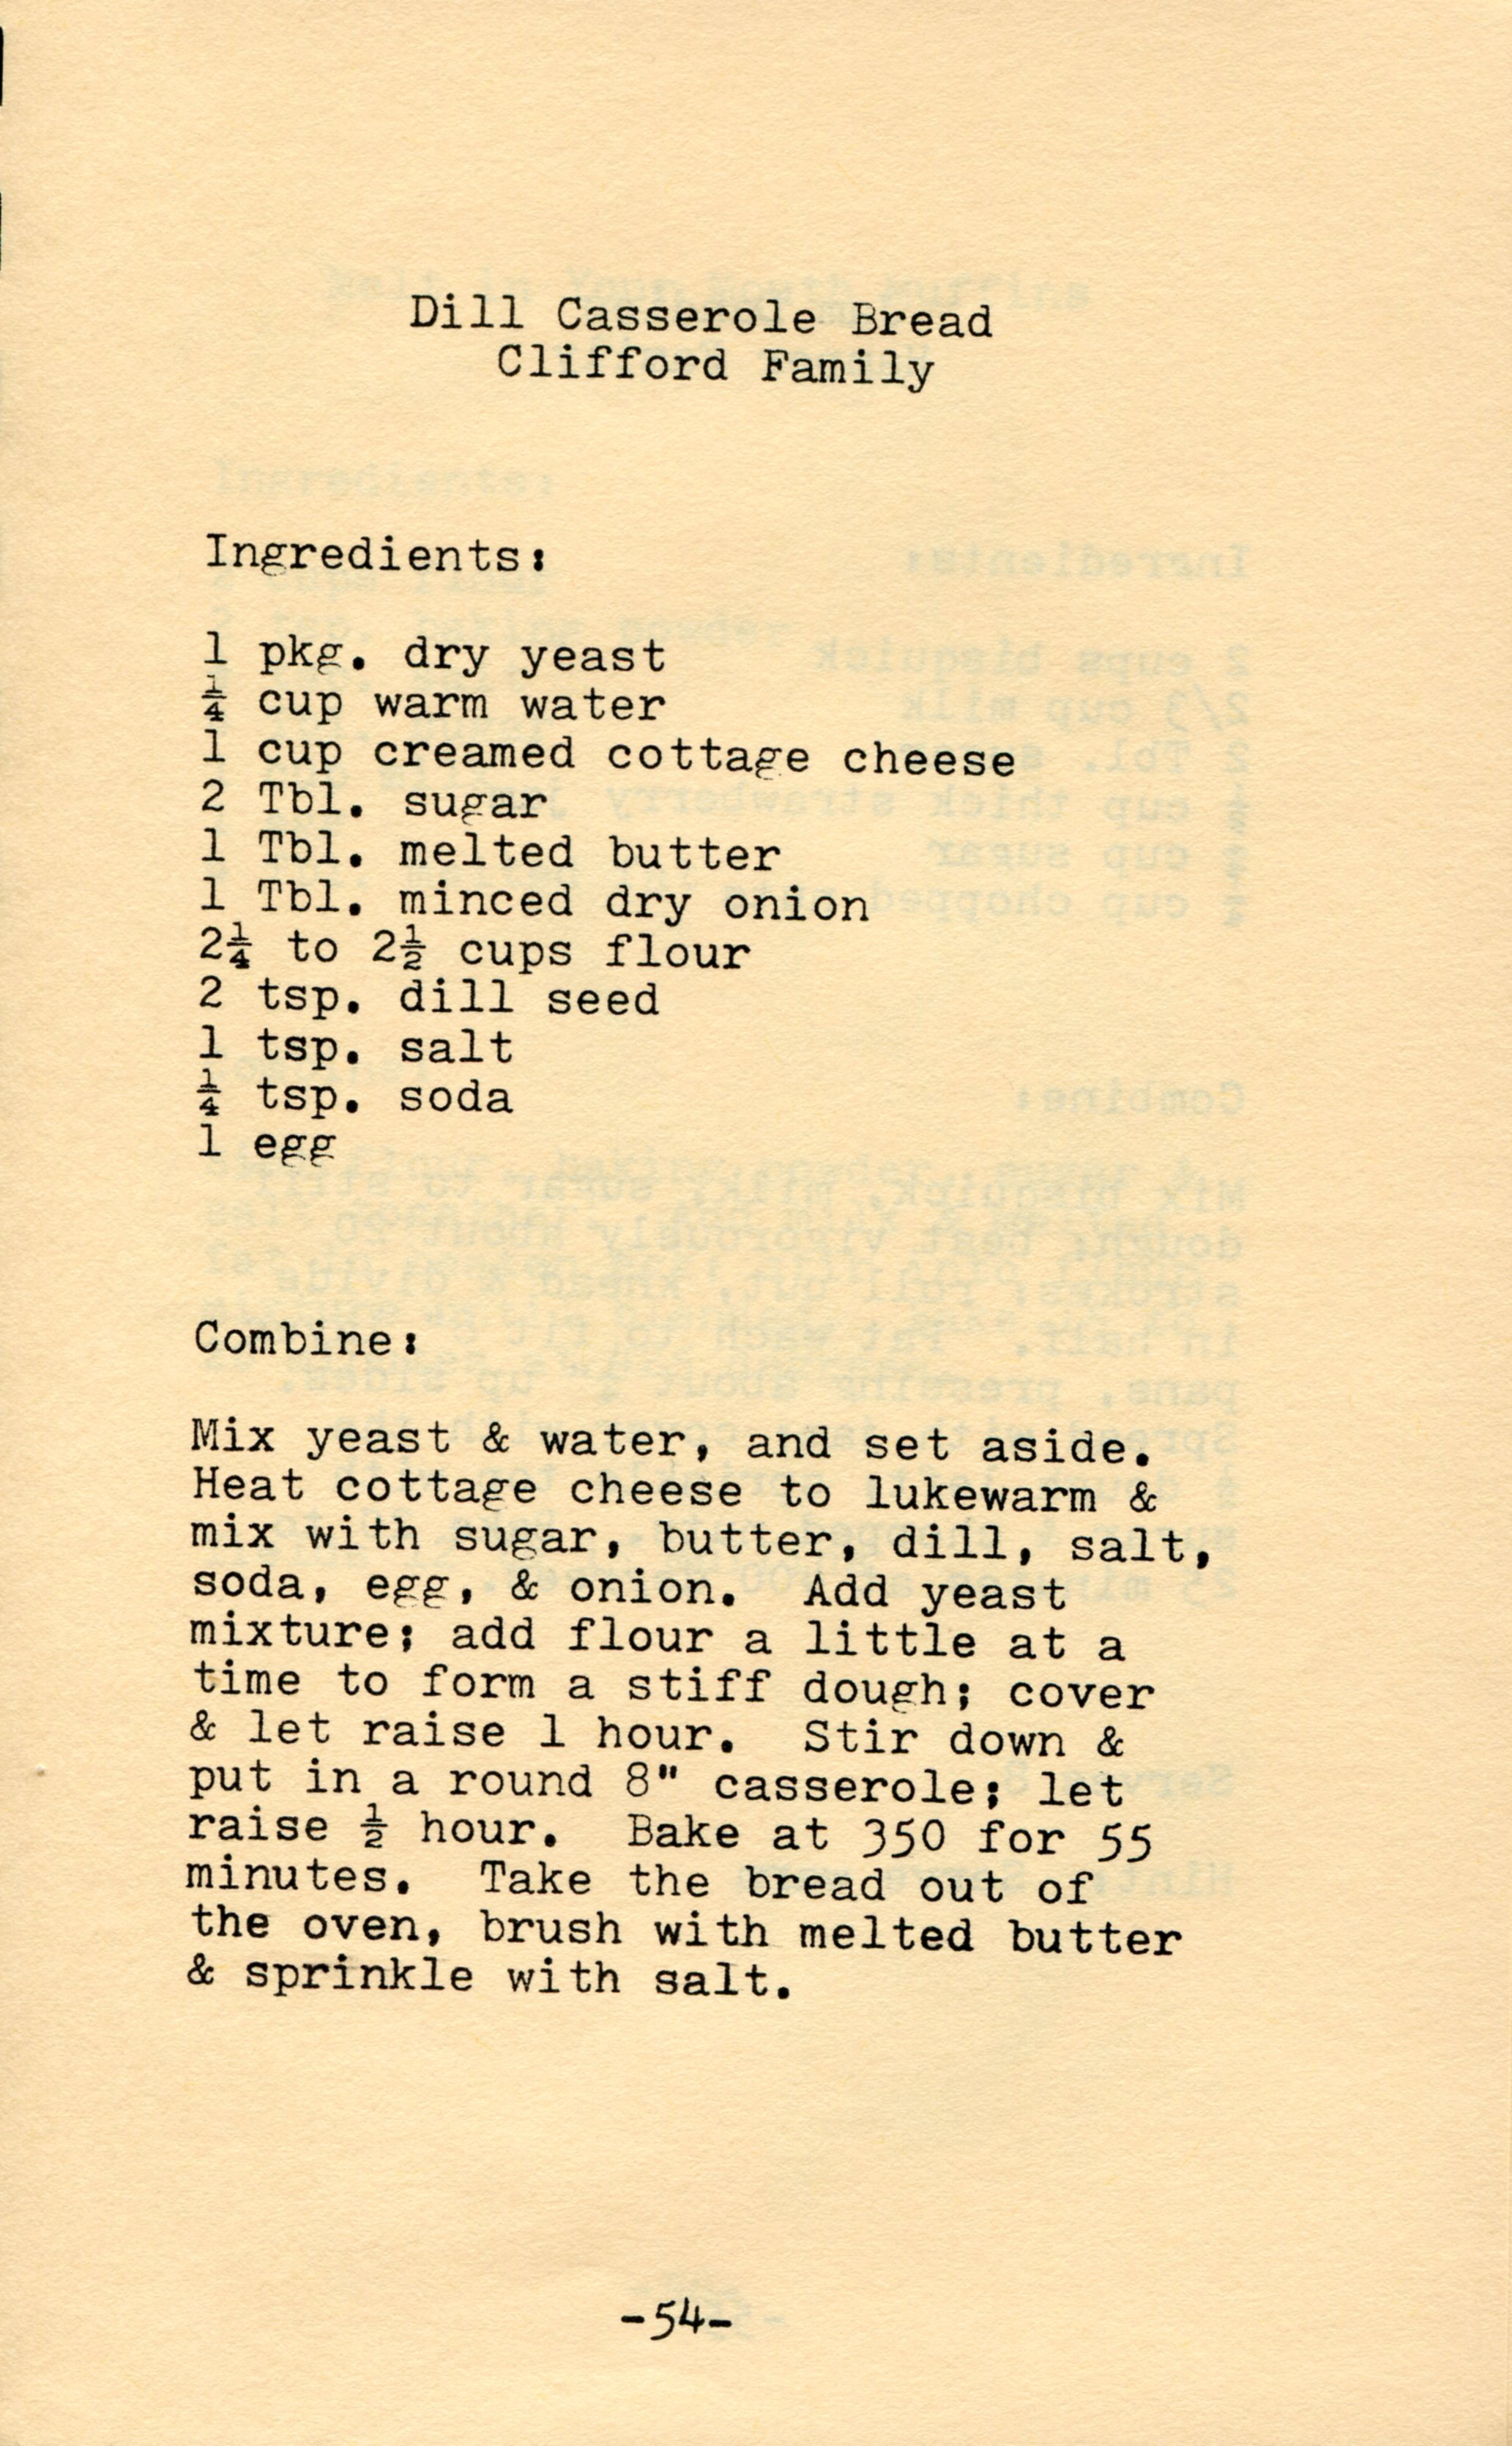 Dill Casserole Bread
Clifford Family
Ingredients:
1 pkg. dry yeast
¼ cup warm water
1 cup creamed cottage cheese
2 Tbl. sugar
1 Tbl. melted butter
1 Tbl. minced dry onion
2¼ to 2½ cups flour
2 tsp. dill seed
1 tsp. salt
¼ tsp. soda
1 egg
Combine:
Mix yeast & water, and set aside.
Heat cottage cheese to lukewarm &
mix with sugar, butter, dill, salt,
soda, egg, & onion. Add yeast
mixture; add flour a little at a
time to form a stiff dough; cover
& let raise 1 hour. Stir down &
put in a round 8" casserole; let
raise ½ hour. Bake at 350 for 55
minutes. Take the bread out of
the oven, brush with melted butter
& sprinkle with salt.
-54-